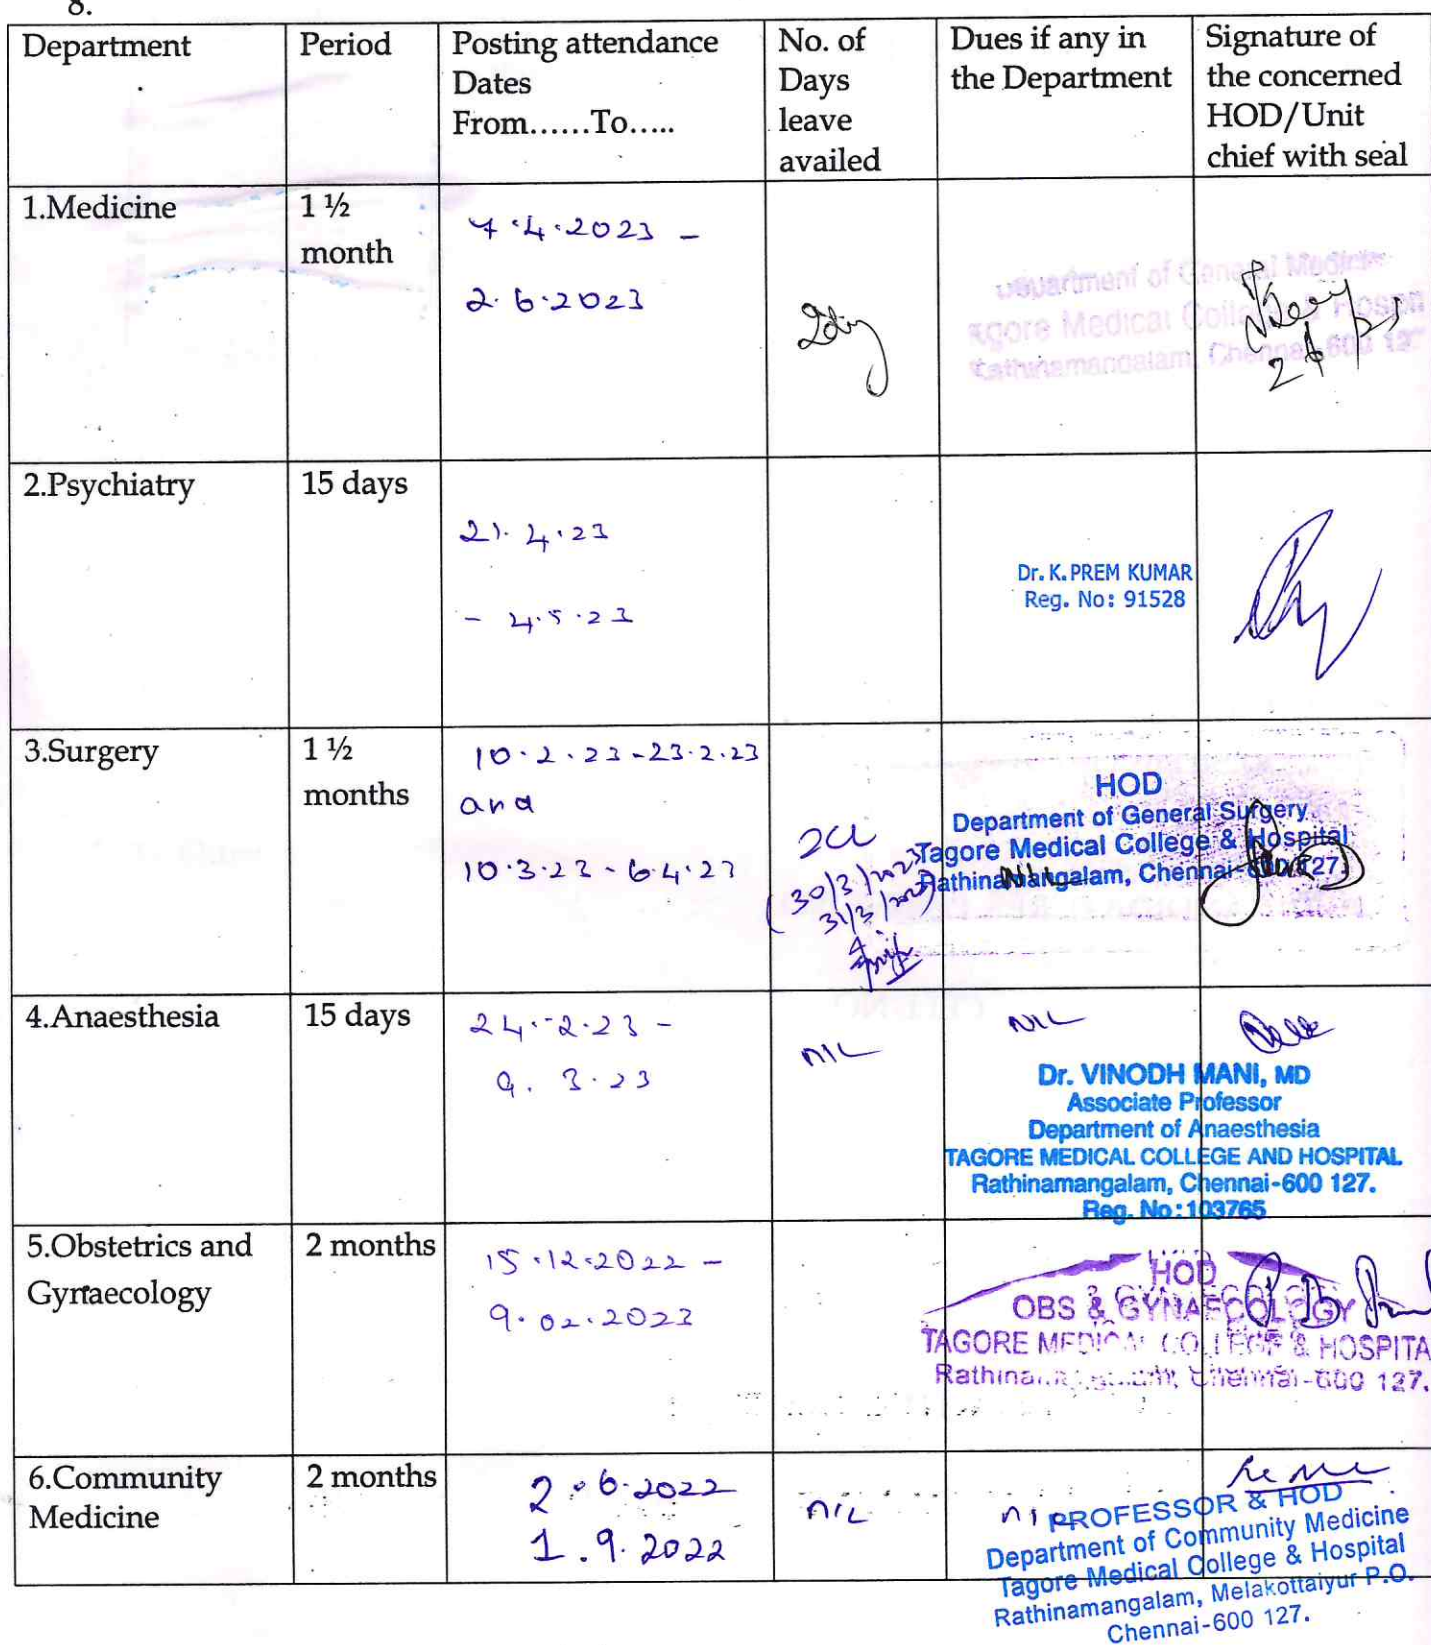 8.
Department
Period
Posting attendance
Dates
From......To.....
No. of
Days
leave
availed
Dues if any in
the Department
Signature of
the concerned
HOD/Unit
chief with seal
1.Medicine
1 ½
month
7.4.2023 -
2.6.2023
Department of General Medicine
Tagore Medical College & Hospi
Rathinamangalam, Chennai-600 12
2.Psychiatry
15 days
21.4.23
- 4.5.23
Dr. K. PREM KUMAR
Reg. No: 91528
3.Surgery
1 ½
months
10.2.23-23.2.23
and
10.3.23-6.4.23
2CL
(30/3/2023
31/3/2023)
NIL
HOD
Department of General Surgery
Tagore Medical College & Hospital
Rathinamangalam, Chennai-600 127.
4.Anaesthesia
15 days
24.-2.23 -
9. 3.23
NIL
NIL
Dr. VINODH MANI, MD
Associate Professor
Department of Anaesthesia
TAGORE MEDICAL COLLEGE AND HOSPITAL
Rathinamangalam, Chennai-600 127.
Reg. No:103765
5.Obstetrics and
Gynaecology
2 months
15.12.2022 -
9.02.2023
HOD
OBS & GYNAECOLOGY
TAGORE MEDICAL COLLEGE & HOSPITA
Rathinamangalam, Chennai-600 127.
6.Community
Medicine
2 months
2.6.2022
1.9.2022
NIL
NIL
PROFESSOR & HOD
Department of Community Medicine
Tagore Medical College & Hospital
Rathinamangalam, Melakottaiyur P.O.
Chennai-600 127.